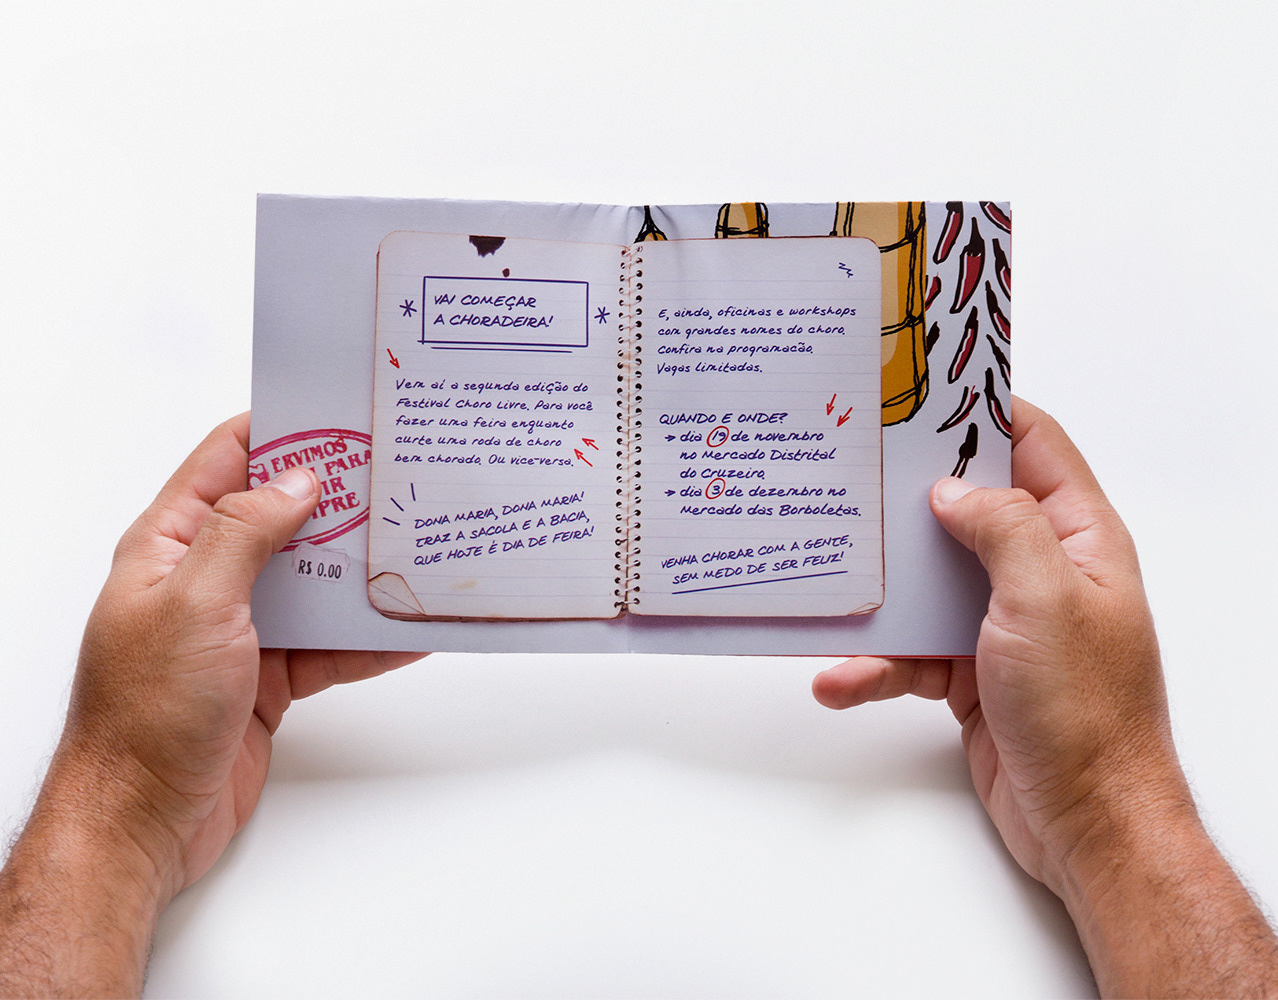 VAI COMEÇAR
A CHORADEIRA!
Vem aí a segunda edição do
Festival Choro Livre. Para você
fazer uma feira enquanto
curte uma roda de choro
bem chorado. Ou vice-versa.
DONA MARIA, DONA MARIA!
TRAZ A SACOLA E A BACIA,
QUE HOJE É DIA DE FEIRA!
ERVIMOS
PARA
IR
MPRE
R$ 0.00
E, ainda, oficinas e workshops
com grandes nomes do choro.
Confira na programacão.
Vagas limitadas.
QUANDO E ONDE?
→ dia 19 de novembro
no Mercado Distrital
do Cruzeiro.
→ dia 3 de dezembro no
Mercado das Borboletas.
VENHA CHORAR COM A GENTE,
SEM MEDO DE SER FELIZ!